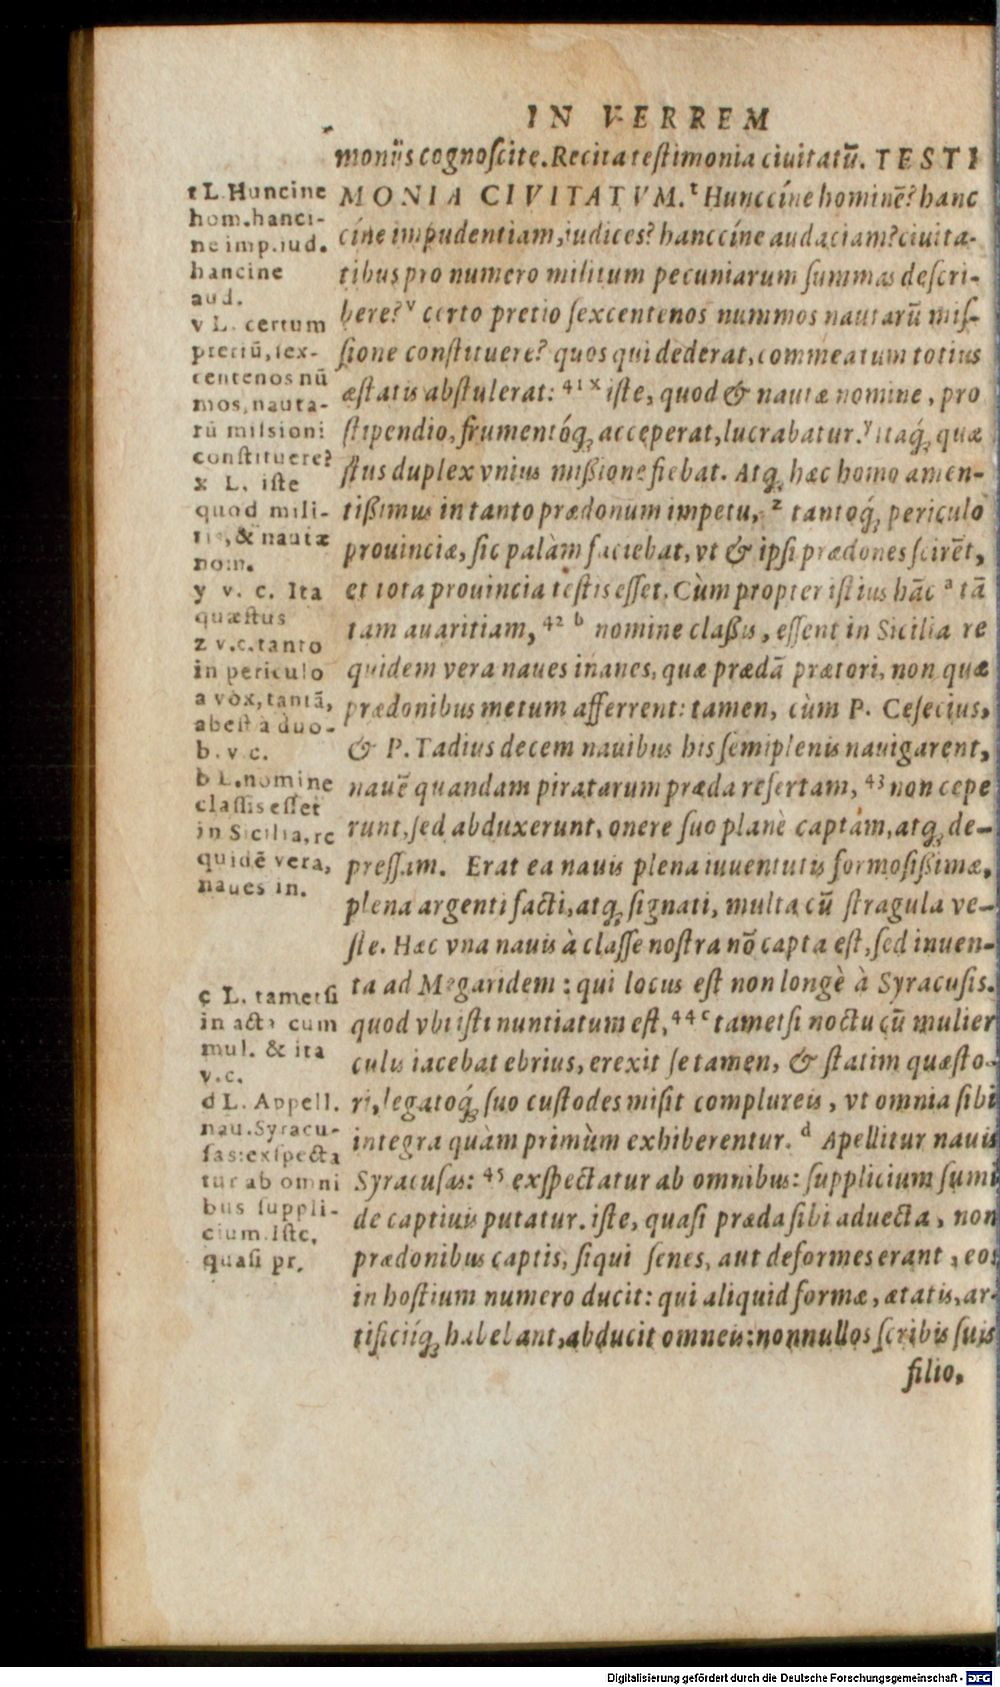 IN VERREM
moniis cognoſcite. Recita teſtimonia ciuitatū. TESTI
MONIA CIVITATVM. t Hunccíne hominē? hanc
cíne impudentiam, iudices? hanccíne audaciam? ciuita-
tibus pro numero militum pecuniarum ſummas deſcri-
bere? v certo pretio ſexcentenos nummos nautarū miſ-
ſione conſtituere? quos qui dederat, commeatum totius
æſtatis abſtulerat: 41 x iſte, quod & nautæ nomine, pro
ſtipendio, frumentóq; acceperat, lucrabatur. y itaq; quæ
ſtus duplex vnius mißione fiebat. Atq; hæc homo amen-
tißimus in tanto prædonum impetu, z tantoq; periculo
prouinciæ, ſic palàm faciebat, vt & ipſi prædones ſcirēt,
et tota prouincia teſtis eſſet. Cùm propter iſtius hāc a tā
tam auaritiam, 42 b nomine claßis, eſſent in Sicilia re
quidem vera naues inanes, quæ prædā prætori, non quæ
prædonibus metum afferrent: tamen, cùm P. Ceſecius,
& P. Tadius decem nauibus his ſemiplenis nauigarent,
nauē quandam piratarum præda refertam, 43 non cepe
runt, ſed abduxerunt, onere ſuo planè captam, atq; de-
preſſam. Erat ea nauis plena iuuentutis formoſißimæ,
plena argenti facti, atq; ſignati, multa cū ſtragula ve-
ſte. Hæc vna nauis à claſſe noſtra nō capta eſt, ſed inuen-
ta ad Megaridem: qui locus eſt non longè à Syracuſis.
quod vbi iſti nuntiatum eſt, 44 c tametſi noctu cū mulier
culis iacebat ebrius, erexit ſe tamen, & ſtatim quæſto-
ri, legatoq; ſuo cuſtodes miſit complureis, vt omnia ſibi
integra quàm primùm exhiberentur. d Apellitur nauis
Syracuſas: 45 exſpectatur ab omnibus: ſupplicium ſumi
de captiuis putatur. iſte, quaſi præda ſibi aduecta, non
prædonibus captis, ſiqui ſenes, aut deformes erant, eos
in hoſtium numero ducit: qui aliquid formæ, ætatis, ar-
tificiíq; habebant, abducit omneis: nonnullos ſcribis ſuis
filio,
t L. Huncine
hom. hanci-
ne imp. iud.
hancine
aud.
v L. certum
preciū, ſex-
centenos nū
mos, nauta-
rū miſsioni
conſtituere?
x L. iſte
quod mili-
tis, & nautæ
nom.
y v. c. Ita
quæſtus
z v. c. tanto
in periculo
a vox, tantā,
abeſt à duo-
b. v. c.
b L. nomine
claſſis eſſet
in Sicilia, re
quidē vera,
naues in.
c L. tametſi
in acta cum
mul. & ita
v. c.
d L. Appell.
nau. Syracu-
ſas: exſpecta
tur ab omni
bus ſuppli-
cium. Iſte,
quaſi pr.
Digitalisierung gefördert durch die Deutsche Forschungsgemeinschaft - DFG